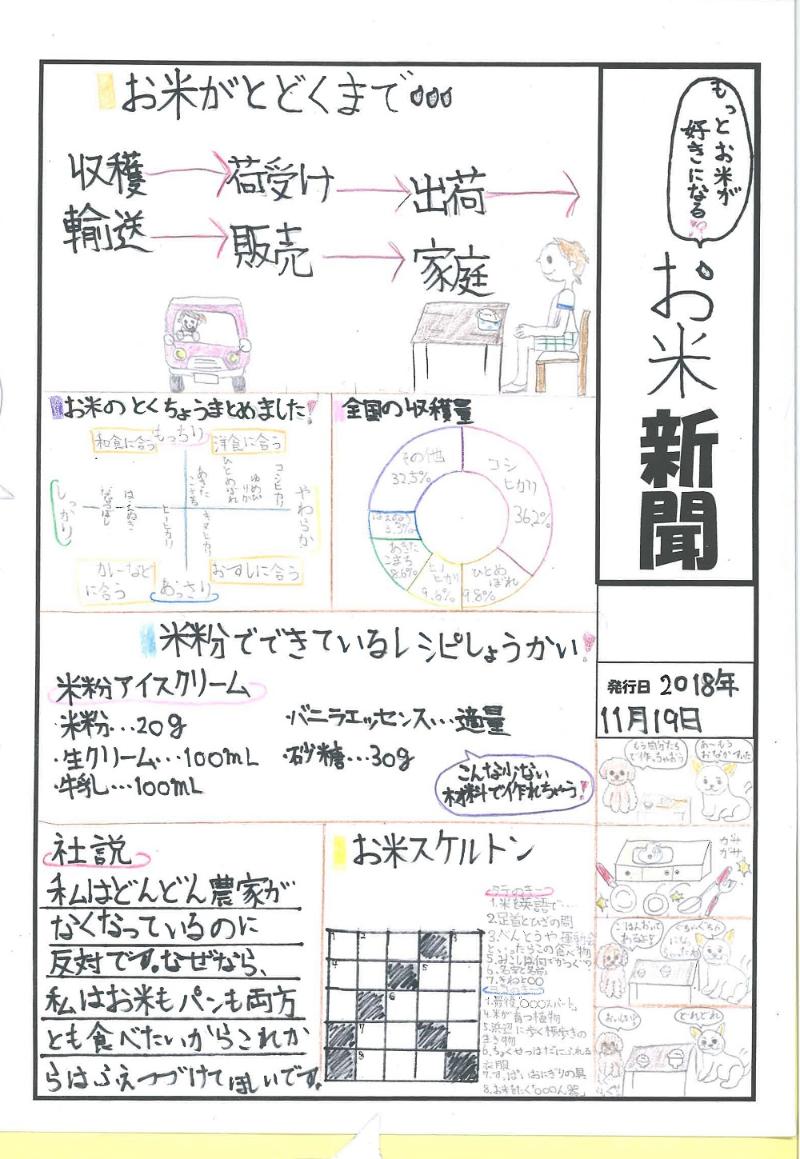 もっとお米が
好きになる!?
お米
新聞
発行日 2018年
11月19日
お米がとどくまで…
収穫→荷受け→出荷→
輸送→販売→家庭
お米のとくちょうまとめました!
和食に合う
もっちり
洋食に合う
しっかり
やわらか
カレーなど
に合う
あっさり
おすしに合う
ななつぼし
はえぬき
ヒノヒカリ
あきた
こまち
ひとめぼれ
ゆめぴ
りか
コシヒカリ
全国の収穫量
コシ
ヒカリ
36.2%
ひとめ
ぼれ
9.8%
ヒノ
ヒカリ
9.6%
あきた
こまち
8.6%
その他
32.5%
米粉でできているレシピしょうかい!
米粉アイスクリーム
・米粉…20g
・生クリーム…100mL
・牛乳…100mL
・バニラエッセンス…適量
・砂糖…30g
こんな少ない
材料で作れちゃう!
社説
私はどんどん農家が
なくなっているのに
反対です。なぜなら、
私はお米もパンも両方
とも食べたいからこれか
らはふえつづけてほしいです。
お米スケルトン
タテのキー
1.米を英語で…
2.足首とひざの間
3.べんとうや運動会
といったらこの食べ物
5.みこしは何でかつぐ?
6.名字と名前
1.最後"〇〇〇スパート"
4.米が育つ植物
5.浜辺にいる横歩きの
生き物
6.ちょくせつはだにふれる
衣服
7.すっぱいおにぎりの具
8.お米をたく"〇〇〇ん器"
もう自分たち
で作っちゃおう
あ〜もう
おなかすいた
ガサ
ガサ
おいしい